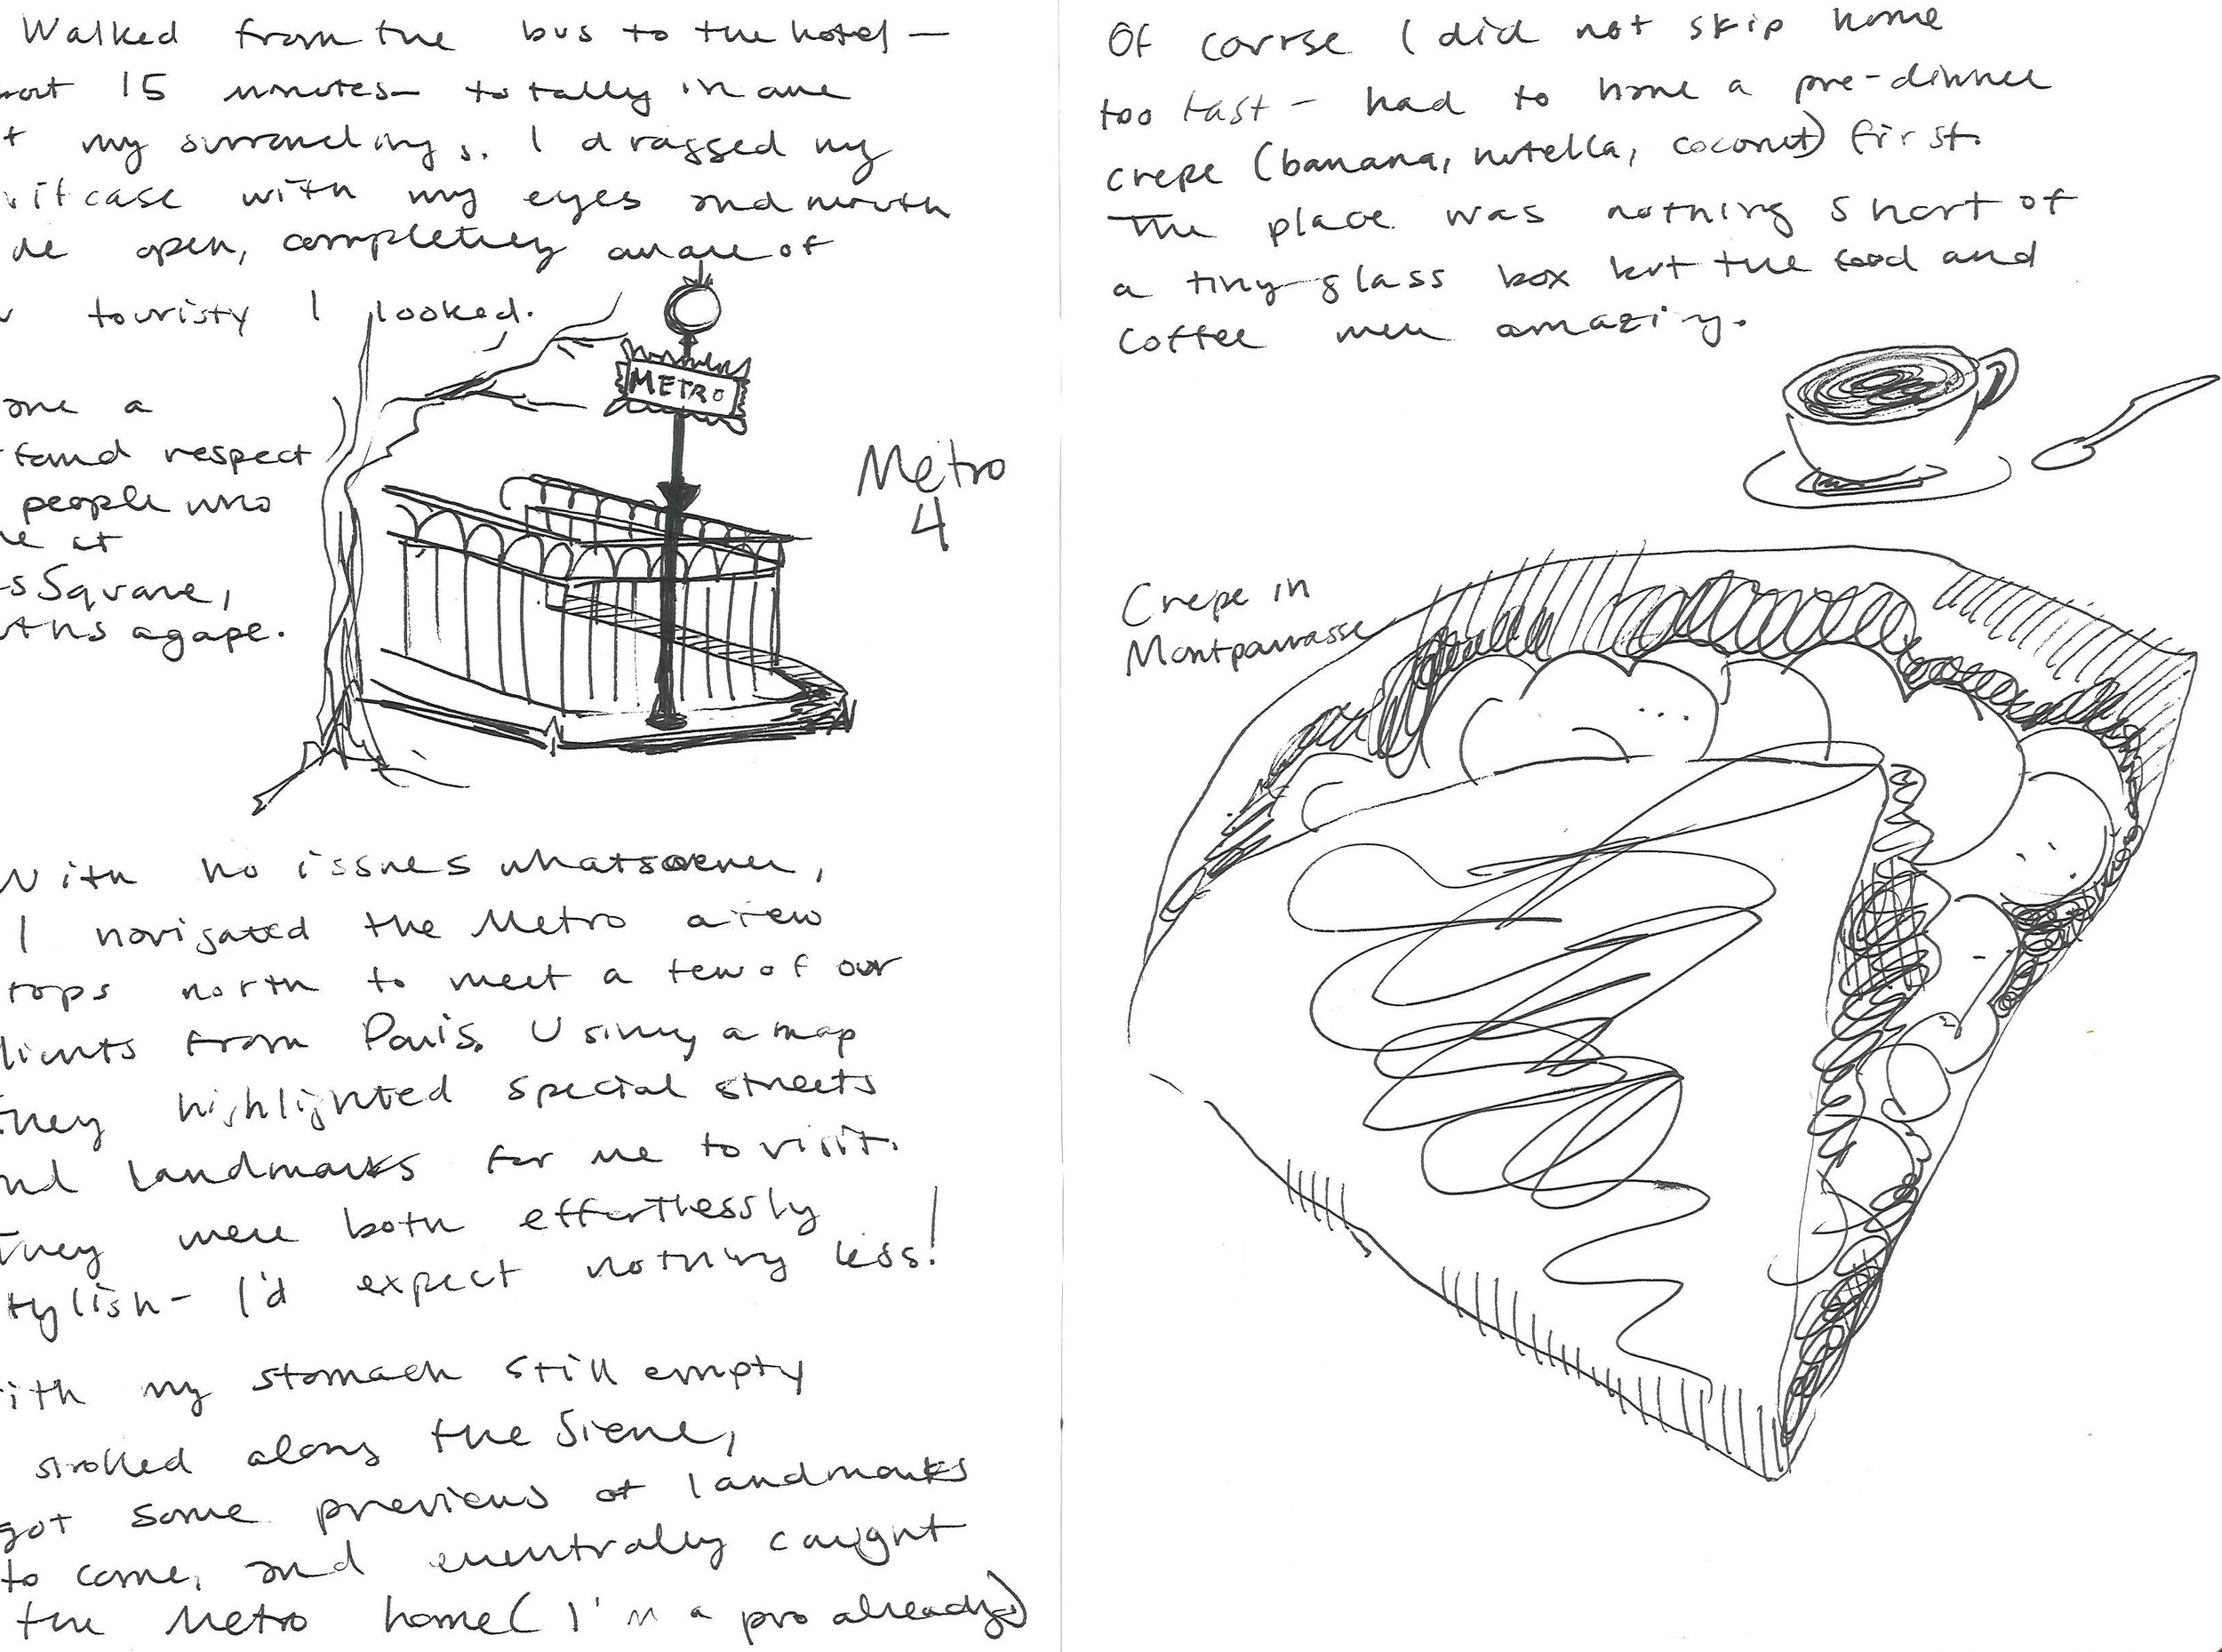 Walked from the bus to the hotel -
out 15 minutes - totally in awe
my surroundings. I dragged my
itcase with my eyes and mouth
de open, completely aware of
touristy I looked.
METRO
Metro
4
ome a
found respect
people who
at
s Square,
uths agape.
With no issues whatsoever,
I navigated the Metro a few
tops north to meet a few of our
lients from Paris. Using a map
they highlighted special streets
nd landmarks for me to visit.
They were both effortlessly
tylish - I'd expect nothing less!
ith my stomach still empty
strolled along the Siene,
got some previews of landmarks
to come, and eventually caught
the Metro home (I'm a pro already)
Of course I did not skip home
too fast - had to have a pre-dinner
crepe (banana, nutella, coconut) first.
The place was nothing short of
a tiny glass box but the food and
coffee were amazing.
Crepe in
Montparnasse